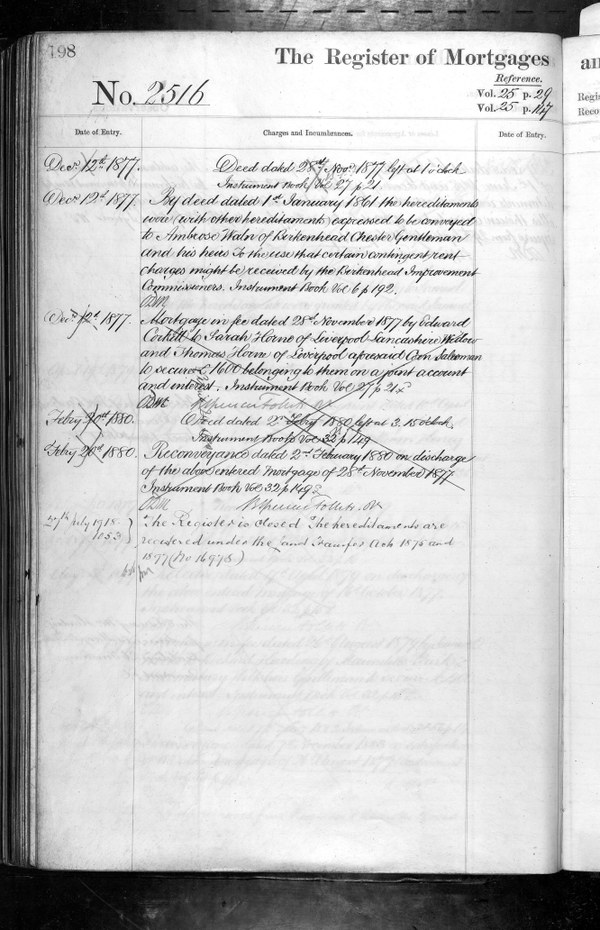 198
The Register of Mortgages
Reference.
No. 2516
Vol. 25 p. 29
Vol. 25 p. 147
Date of Entry.
Charges and Incumbrances.
Date of Entry.
Decr 12th 1877.
Deed dated 28th Novr 1877 left at 1 o'clock
Instrument Book Vol 27 p 21
Decr 12th 1877.
By deed dated 1st January 1861 the hereditaments
were (with other hereditaments) expressed to be conveyed
to Ambrose Waln of Birkenhead Chester Gentleman
and his heirs To the use that certain contingent rent
charges might be received by the Birkenhead Improvement
Commissioners. Instrument Book Vol 6 p 192.
Decr 12th 1877.
Mortgage in fee dated 28th November 1877 by Edward
to Sarah Horne of Liverpool Lancashire Widow
and Thomas Horne of Liverpool aforesaid Salesman
to secure £1600 belonging to them on a joint account
and interest. Instrument Book Vol 27 p 21
Febry 20th 1880.
Deed dated 2nd Febry 1880 left at 3.15 o'clock.
Instrument Book Vol 32 p 149
Febry 20th 1880.
Reconveyance dated 2nd February 1880 in discharge
of the above entered mortgage of 28th November 1877
Instrument Book Vol 32 p 149
27th July 1918
1053
The Register is closed The hereditaments are
registered under the Land Transfer Acts 1875 and
1897 (No 16978)
an
Regi
Reco